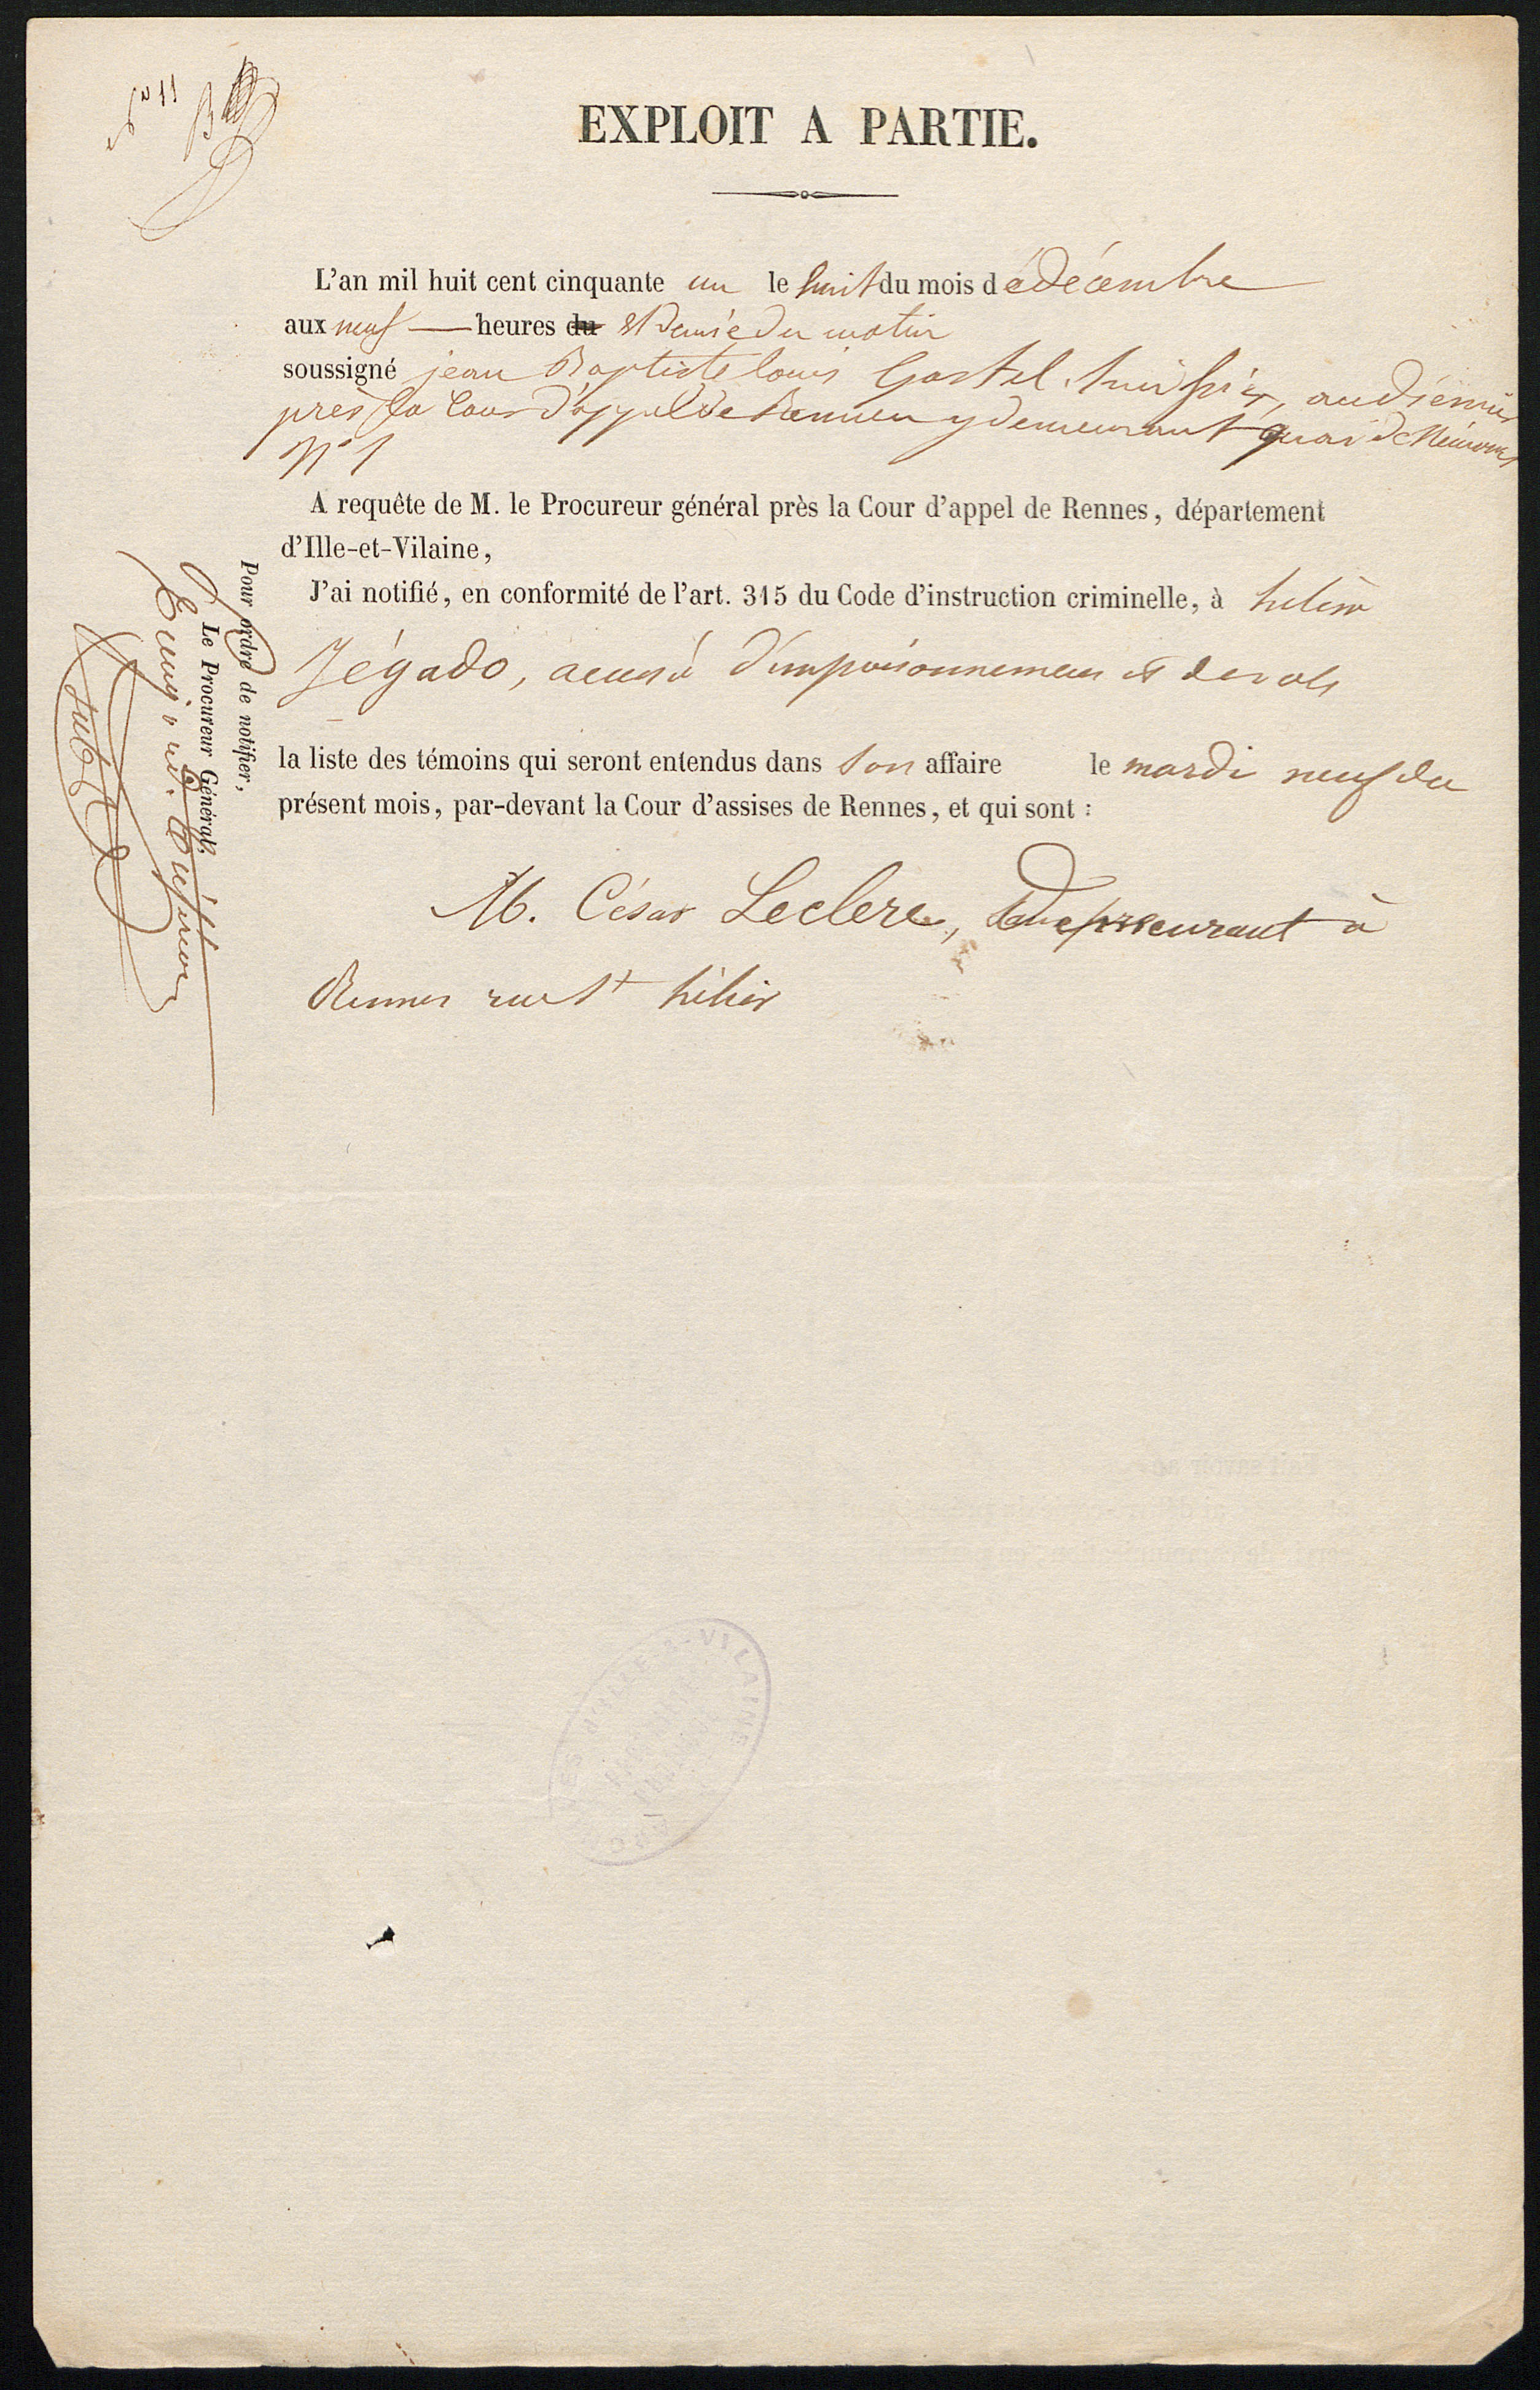 N° 11
EXPLOIT A PARTIE.
L'an mil huit cent cinquante un le huit du mois de décembre
aux neuf — heures du et demie du matin
soussigné jean Baptiste louis Gastel huissier, audiencier
près la Cour d'appel de Rennes y demeurant quai de Nemours
N° 1
A requête de M. le Procureur général près la Cour d'appel de Rennes, département
d'Ille-et-Vilaine,
J'ai notifié, en conformité de l'art. 315 du Code d'instruction criminelle, à hélène
Jégado, accusée d'empoisonnemens et de vols
la liste des témoins qui seront entendus dans son affaire le mardi neuf du
présent mois, par-devant la Cour d'assises de Rennes, et qui sont :
M. César Leclerc, demeurant à
Rennes rue St hélier
Pour ordre de notifier,
Le Procureur Général,
ARCHIVES d'ILLE-&-VILAINE